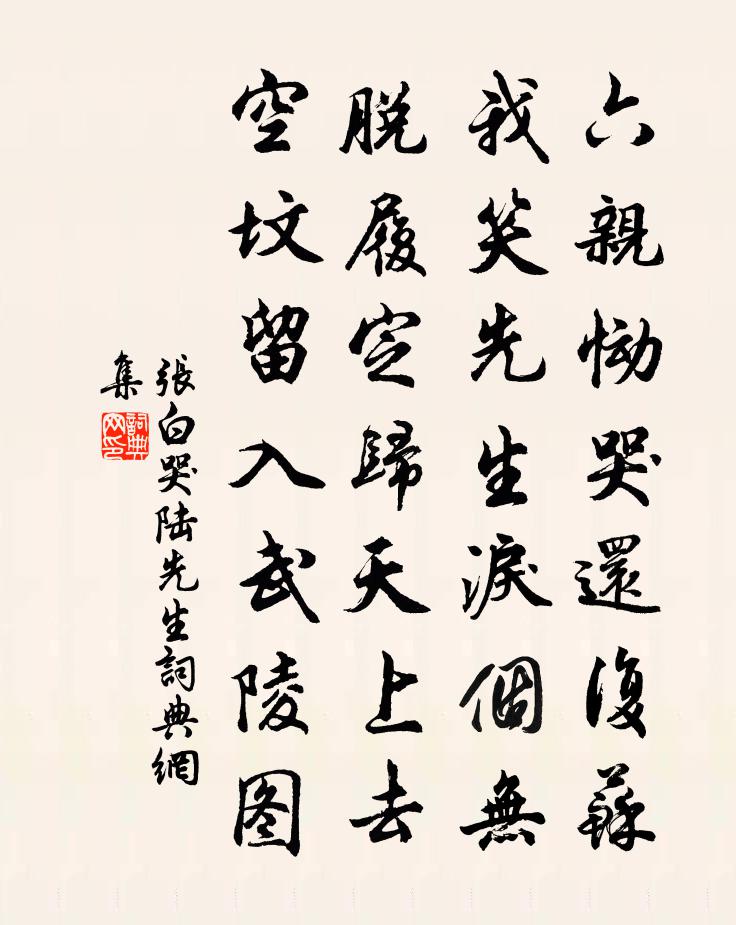 六親慟哭還復蘇
我笑先生淚個無
脱履定歸天上去
空坟留入武陵图
張白哭陆先生詞典網
集
詞典网印